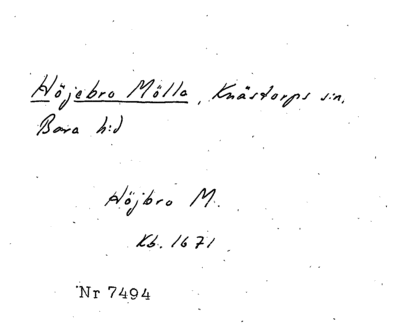 Höjebro Mölla, Knästorps sn.
Bara h:d
Höjbro M.
Kb. 1671
Nr 7494